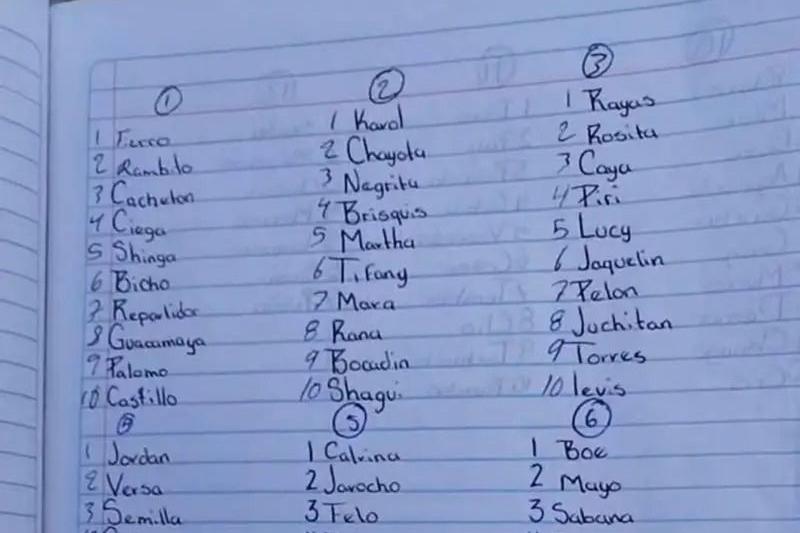 ①
1 Ferro
2 Rambito
3 Cachelon
4 Ciega
5 Shinga
6 Bicho
7 Reparlidor
8 Guacamaya
9 Palomo
10 Castillo
②
1 Karol
2 Chayota
3 Negrita
4 Brisquis
5 Martha
6 Tifany
7 Mara
8 Rana
9 Bocadin
10 Shagui
③
1 Rayas
2 Rosita
3 Caya
4 Piri
5 Lucy
6 Jaquelin
7 Pelon
8 Juchitan
9 Torres
10 levis
④
1 Jordan
2 Versa
3 Semilla
⑤
1 Calvina
2 Jarocho
3 Felo
⑥
1 Boe
2 Mayo
3 Sabana